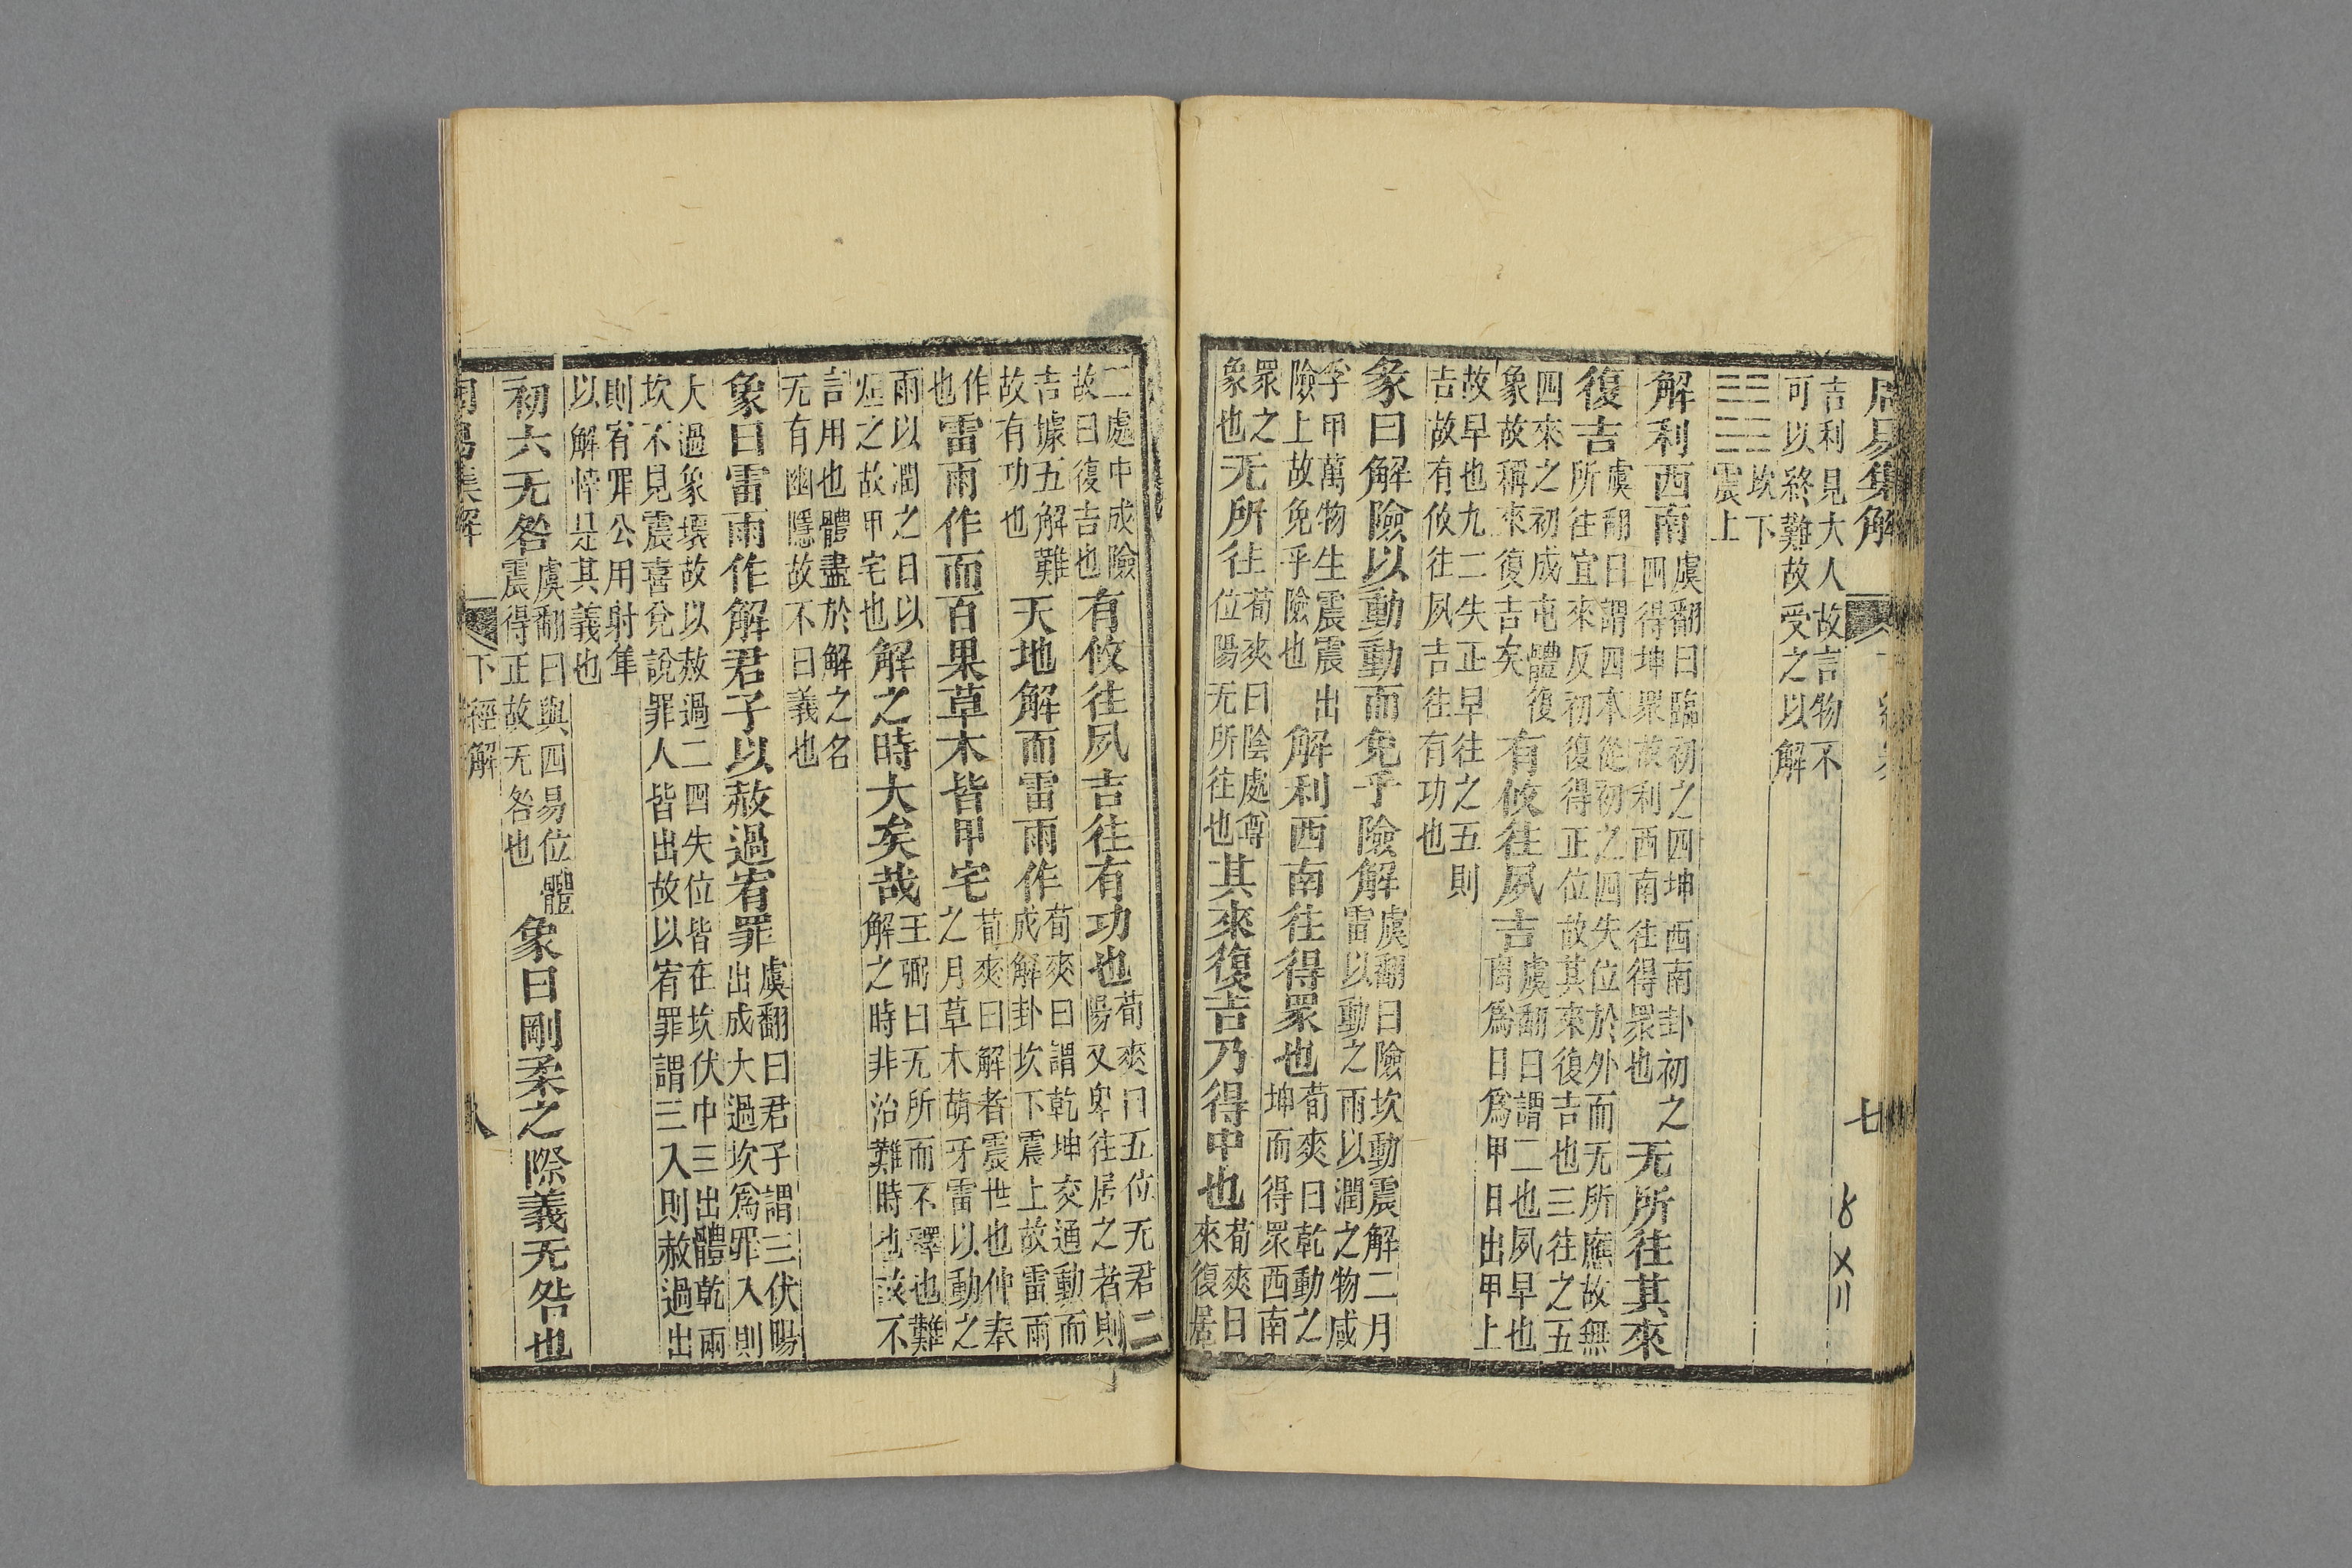 周易集解
七
吉利見大人故言物不
可以終難故受之以解
坎下
震上
解利西南
虞翻曰臨初之四坤西南卦初之
四得坤眾故利西南往得眾也
无所往其來
復吉
虞翻曰謂四本從初之四失位於外而无所應故無
所往宜來反初復得正位故其來復吉也三往之五
四來之初成屯體復
象故稱來復吉矣
有攸往夙吉
虞翻曰謂二也夙早也
離爲日爲甲日出甲上
故早也九二失正早往之五則
吉故有攸往夙吉往有功也
彖曰解險以動動而免乎險解
虞翻曰險坎動震解二月
雷以動之雨以潤之物咸
孚甲萬物生震震出
險上故免乎險也
解利西南往得眾也
荀爽曰乾動之
坤而得眾西南
眾之
象也
无所往
荀爽曰陰處尊
位陽无所往也
其來復吉乃得中也
荀爽曰
來復居
二處中成險
故曰復吉也
有攸往夙吉往有功也
荀爽曰五位无君二
陽又卑往居之者則
吉據五解難
故有功也
天地解而雷雨作
荀爽曰謂乾坤交通動而
成解卦坎下震上故雷雨
作
也
雷雨作而百果草木皆甲宅
荀爽曰解者震世也仲春
之月草木萌牙雷以動之
雨以潤之日以
烜之故甲宅也
解之時大矣哉
王弼曰无所而不釋也難
解之時非治難時也故不
言用也體盡於解之名
无有幽隱故不曰義也
象曰雷雨作解君子以赦過宥罪
虞翻曰君子謂三伏陽
出成大過坎爲罪入則
大過象壞故以赦過二四失位皆在坎伏中三出體乾兩
坎不見震喜兌說罪人皆出故以宥罪謂三入則赦過出
則宥罪公用射隼
以解悖是其義也
初六无咎
虞翻曰與四易位體
震得正故无咎也
象曰剛柔之際義无咎也
周易集解
下經解
八